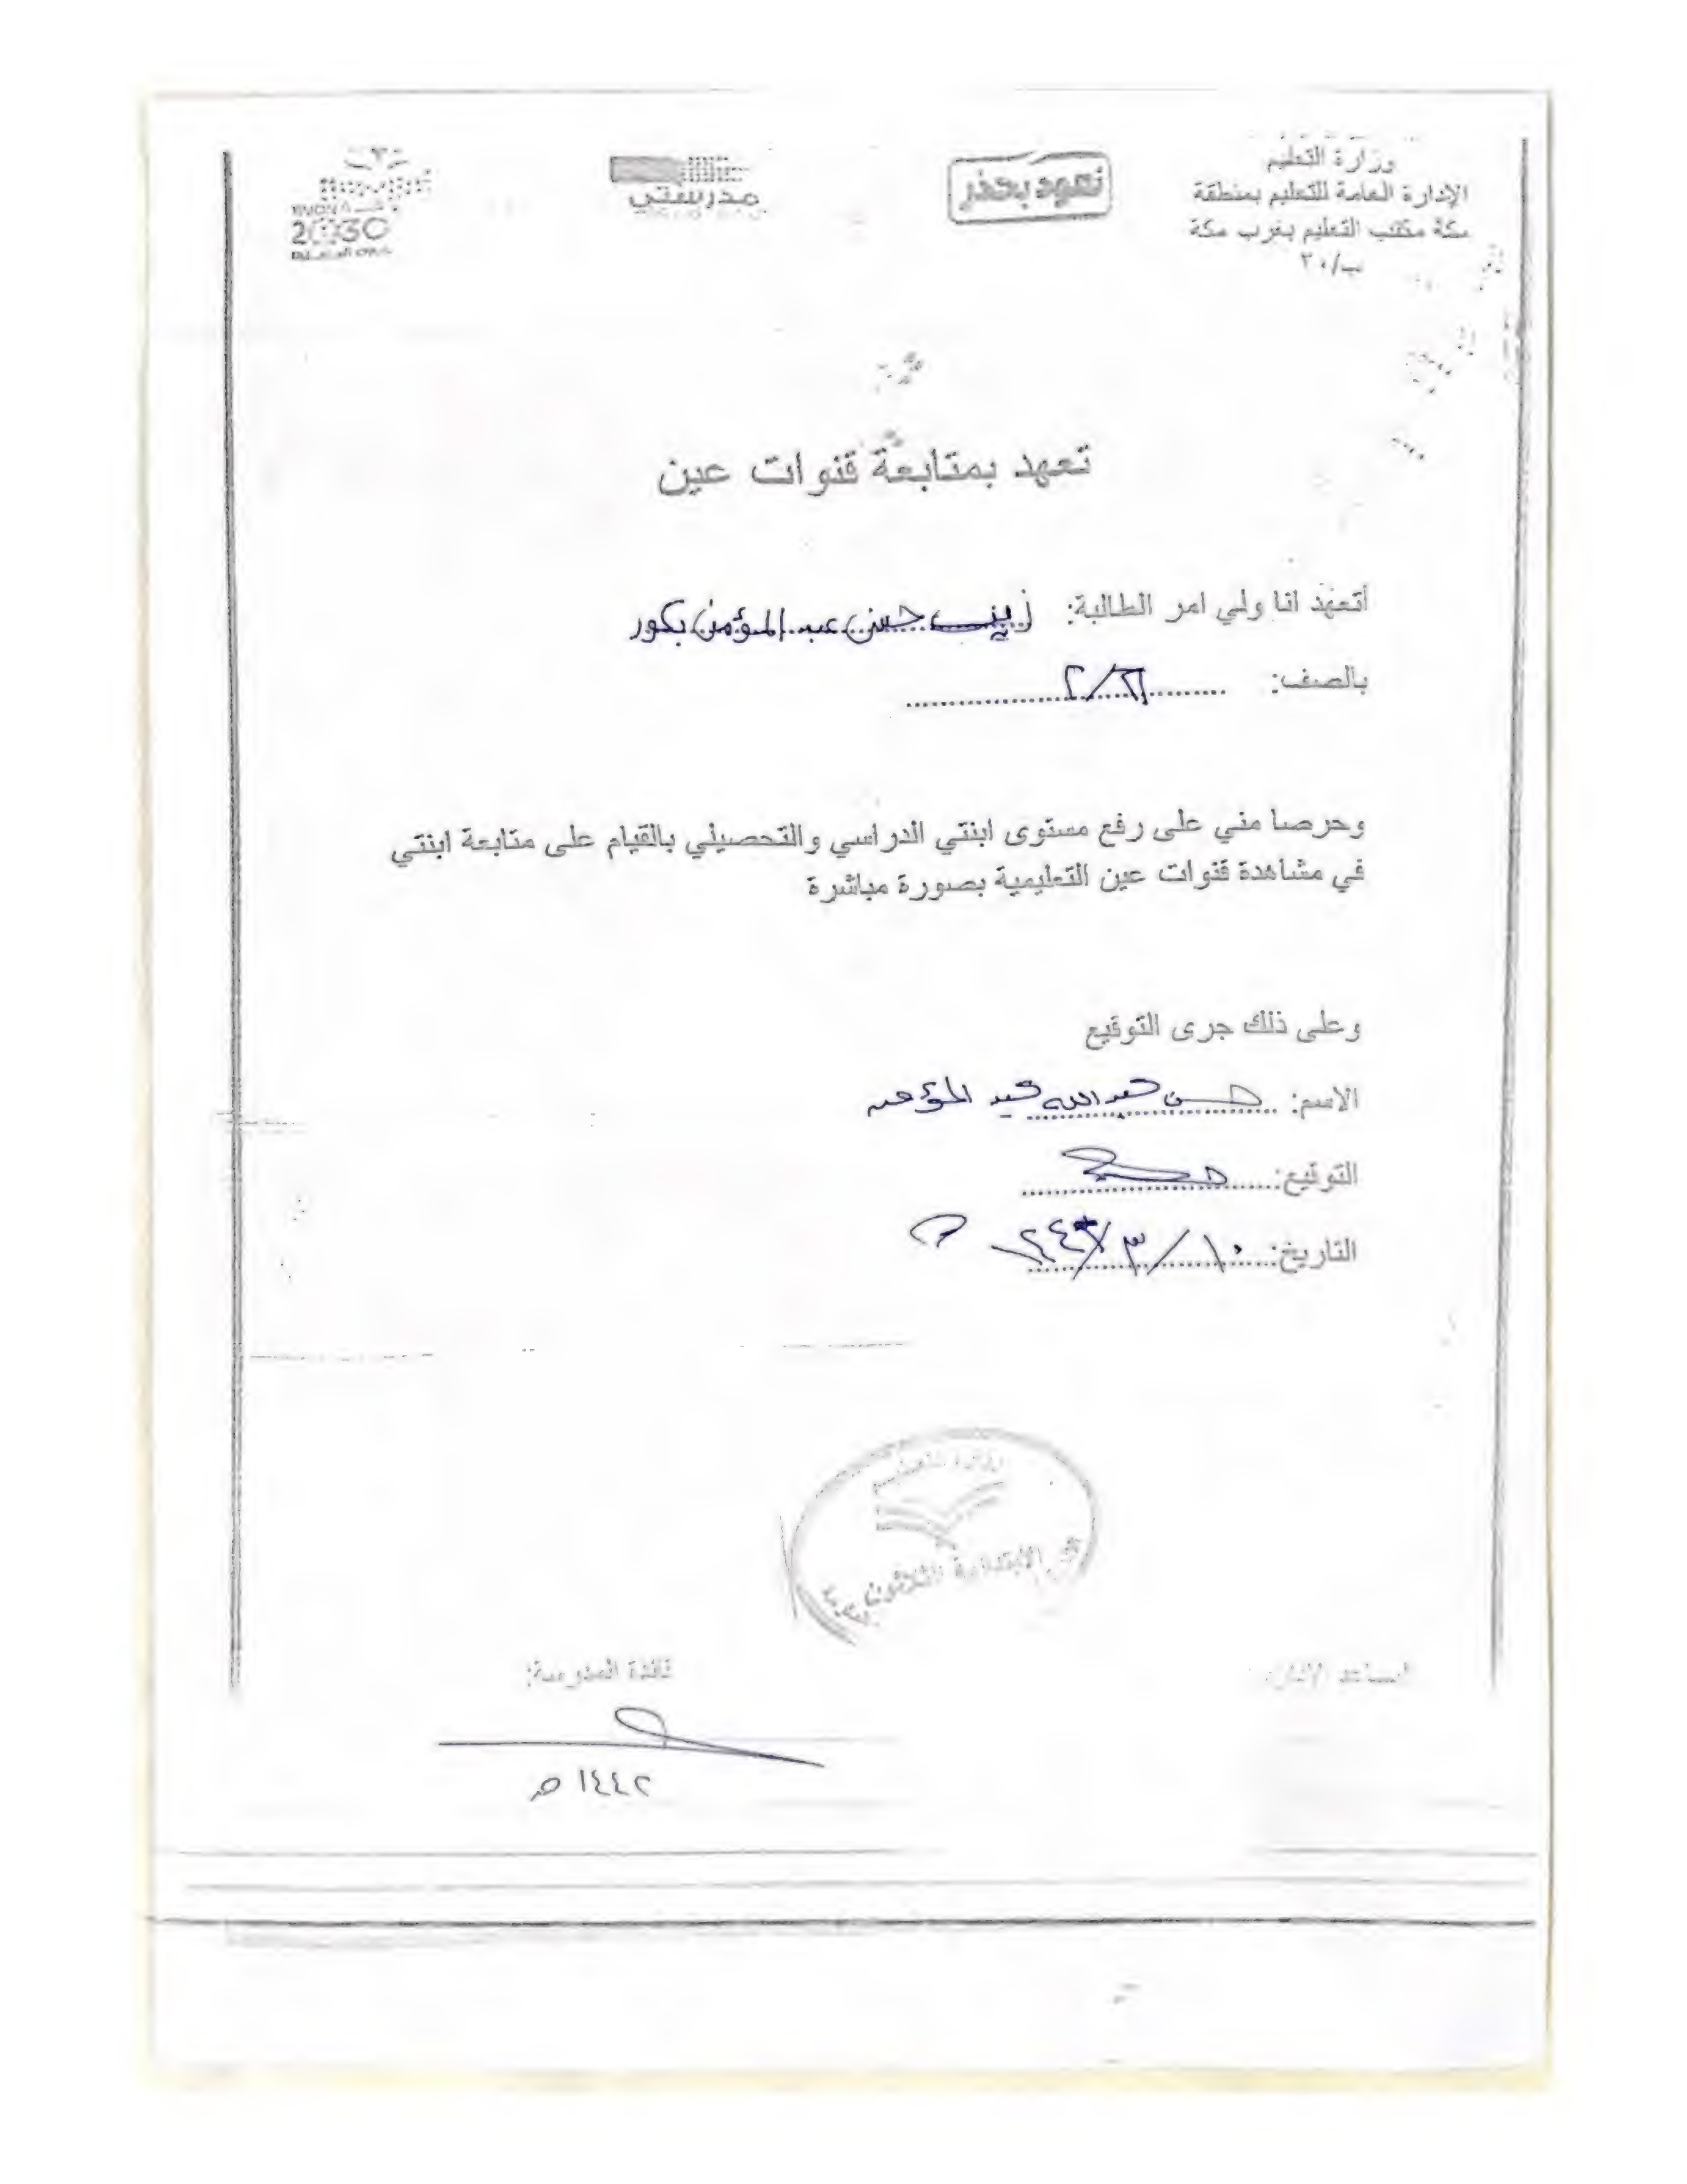 وزارة التعليم
الإدارة العامة للتعليم بمنطقة
مكة مكتب التعليم بغرب مكة
ب/٢٠
نعود بحذر
مدرستي
VISION رؤية
2030
تعهد بمتابعة قنوات عين
أتعهد انا ولي امر الطالبة: زينب حسن عبد المؤمن بكور
بالصف: ٢/٣
وحرصا مني على رفع مستوى ابنتي الدراسي والتحصيلي بالقيام على متابعة ابنتي
في مشاهدة قنوات عين التعليمية بصورة مباشرة
وعلى ذلك جرى التوقيع
الاسم: حسن عبدالله عبد المؤمن
التوقيع:
التاريخ: ١٠/٣/
وزارة التعليم
الابتدائية الثلاثون
قائدة المدرسة:
١٤٤٢ ه